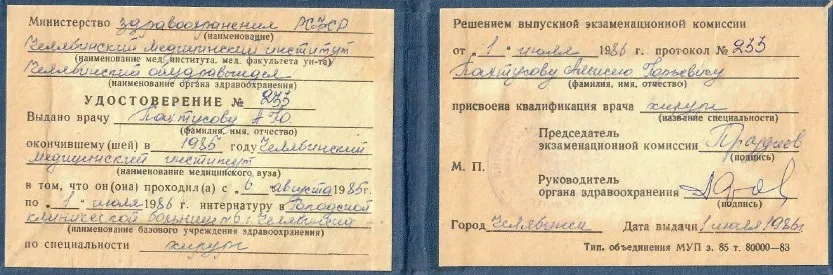 Министерство здравоохранения РСФСР
(наименование)
Челябинский медицинский институт
(наименование мед. института, мед. факультета ун-та)
Челябинский облздравотдел
(наименование органа здравоохранения)
УДОСТОВЕРЕНИЕ № 233
Выдано врачу Пахтусову А Ю.
(фамилия, имя, отчество)
окончившему(шей) в 1985 году Челябинский
медицинский институт
(наименование медицинского вуза)
в том, что он(она) проходил(а) с „6 августа 1985г.
по „1 июля 1986 г. интернатуру в Городской
клинической больнице №6 г. Челябинска
(наименование базового учреждения здравоохранения)
по специальности хирург
Решением выпускной экзаменационной комиссии
от „1" июля 1986 г. протокол № 233
Пахтусову Алексею Юрьевичу
(фамилия, имя, отчество)
присвоена квалификация врача хирург
(название специальности)
Председатель
экзаменационной комиссии
(подпись)
М. П.
Руководитель
органа здравоохранения
(подпись)
Город Челябинск Дата выдачи 1 июля 1986г
Тип. объединения МУП з. 85 т. 80000—83